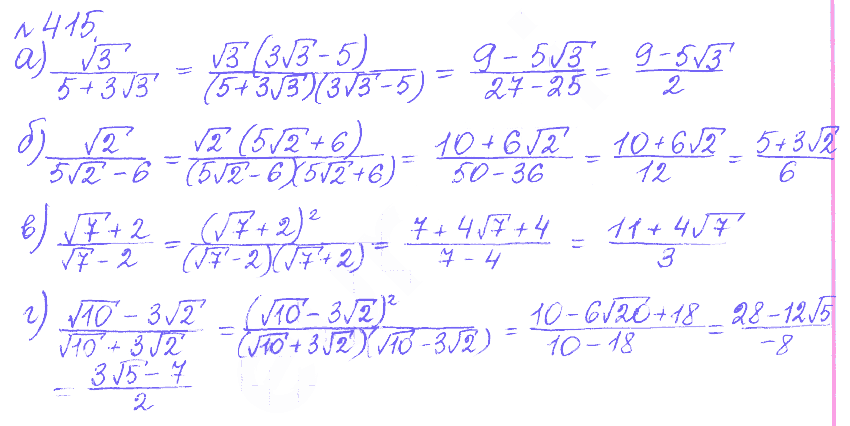 № 415.
а) √3/(5 + 3√3) = √3 (3√3 - 5)/((5 + 3√3)(3√3 - 5)) = (9 - 5√3)/(27 - 25) = (9 - 5√3)/2
б) √2/(5√2 - 6) = √2 (5√2 + 6)/((5√2 - 6)(5√2 + 6)) = (10 + 6√2)/(50 - 36) = (10 + 6√2)/12 = (5 + 3√2)/6
в) (√7 + 2)/(√7 - 2) = (√7 + 2)²/((√7 - 2)(√7 + 2)) = (7 + 4√7 + 4)/(7 - 4) = (11 + 4√7)/3
г) (√10 - 3√2)/(√10 + 3√2) = (√10 - 3√2)²/((√10 + 3√2)(√10 - 3√2)) = (10 - 6√20 + 18)/(10 - 18) = (28 - 12√5)/(-8)
= (3√5 - 7)/2